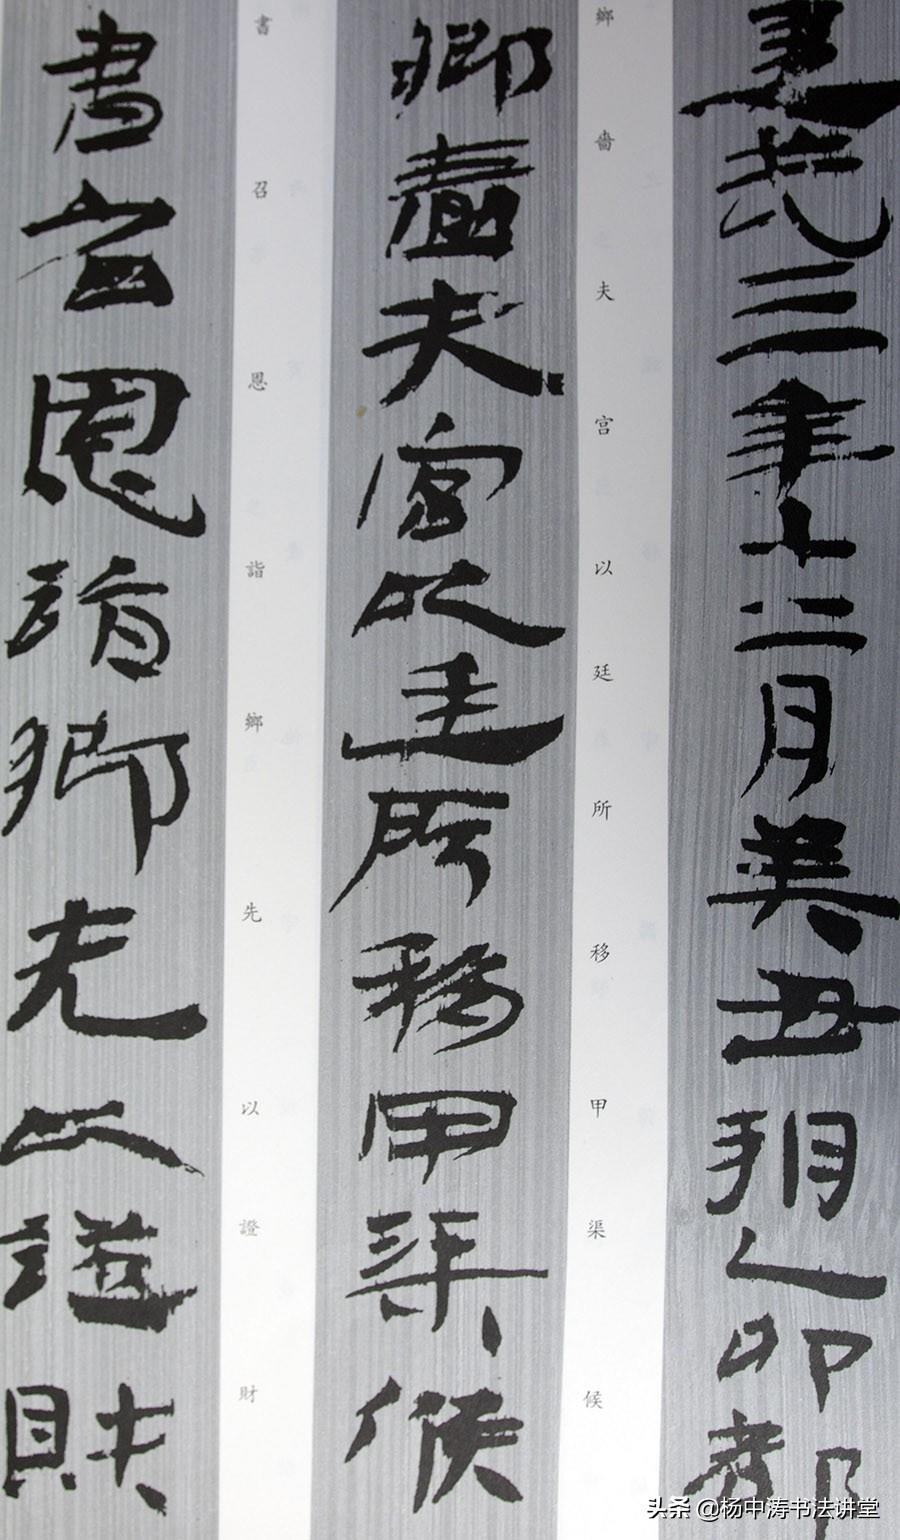 建武三年十二月癸丑朔乙卯都
鄉嗇夫宮以廷所移甲渠候
鄉嗇夫宮以廷所移甲渠候
書召恩詣鄉先以證財
書召恩詣鄉先以證財
头条 @杨中涛书法讲堂